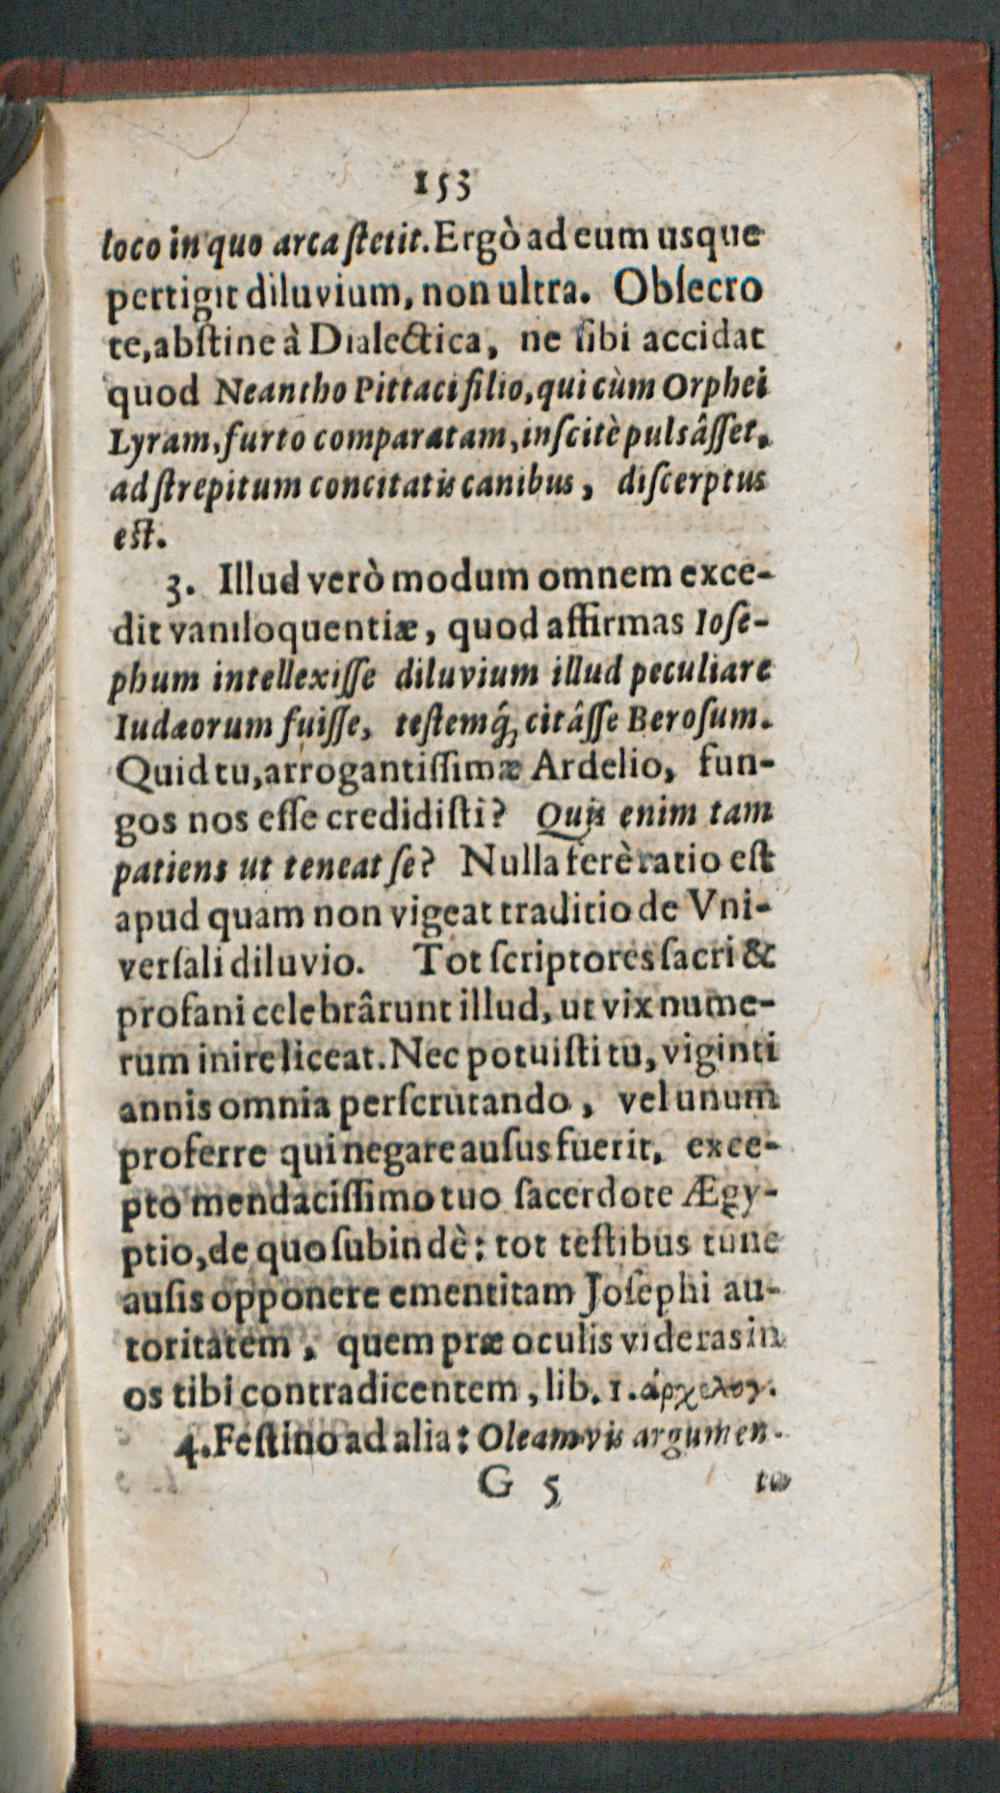 153
loco in quo arca ſtetit. Ergò ad eum usque
pertigit diluvium, non ultra. Obſecro
te, abſtine à Dialectica, ne ſibi accidat
quod Neantho Pittaci filio, qui cùm Orphei
Lyram, furto comparatam, inſcitè pulsâſſet,
ad ſtrepitum concitatis canibus, diſcerptus
eſt.
3. Illud verò modum omnem exce-
dit vaniloquentiæ, quod affirmas Ioſe-
phum intellexiſſe diluvium illud peculiare
Iudæorum fuiſſe, teſtemq́; citâſſe Beroſum.
Quid tu, arrogantiſſimæ Ardelio, fun-
gos nos eſſe credidiſti? Quis enim tam
patiens ut teneat ſe? Nulla ferè ratio eſt
apud quam non vigeat traditio de Vni-
verſali diluvio. Tot ſcriptores ſacri &
profani celebrârunt illud, ut vix nume-
rum inire liceat. Nec potuiſti tu, viginti
annis omnia perſcrutando, vel unum
proferre qui negare auſus fuerit, exce-
pto mendaciſſimo tuo ſacerdote Ægy-
ptio, de quo ſubindè: tot teſtibus tune
auſis opponere ementitam Joſephi au-
toritatem, quem præ oculis videras in
os tibi contradicentem, lib. 1. ἀρχελογ.
4. Feſtino ad alia: Oleam vis argumen-
G 5
to